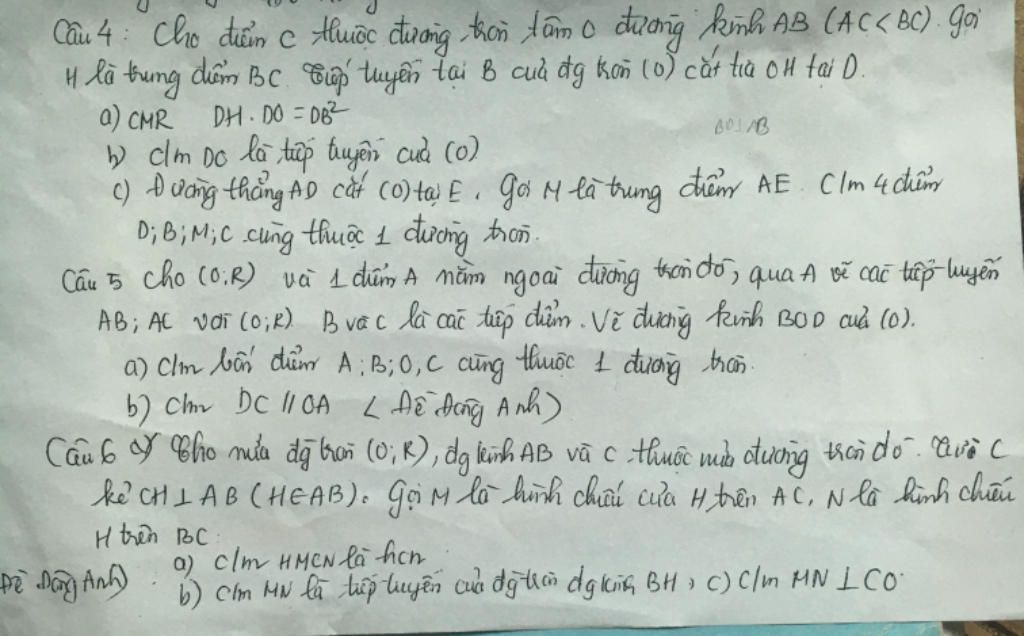 Câu 4: Cho điểm C thuộc đường tròn tâm O đường kính AB (AC < BC). Gọi
H là trung điểm BC Tiếp tuyến tại B của đg tròn (O) cắt tia OH tại D.
a) CMR DH . DO = DB²
BD⊥AB
b) c/m DC là tiếp tuyến của (O)
c) Đường thẳng AD cắt (O) tại E. Gọi M là trung điểm AE. C/m 4 điểm
D; B; M; C cùng thuộc 1 đường tròn.
Câu 5 cho (O;R) và 1 điểm A nằm ngoài đường tròn đó, qua A vẽ các tiếp tuyến
AB; AC với (O;R) B và C là các tiếp điểm. Vẽ đường kính BOD của (O).
a) C/m bốn điểm A; B; O, C cùng thuộc 1 đường tròn.
b) C/m DC // OA (Đề Đông Anh)
Câu 6 Cho nửa đg tròn (O;R), đg kính AB và C thuộc nửa đường tròn đó. Từ C
kẻ CH⊥AB (H∈AB). Gọi M là hình chiếu của H trên AC, N là hình chiếu
H trên BC.
a) C/m HMCN là hcn
Đề Đông Anh) b) C/m MN là tiếp tuyến của đg tròn đg kính BH, c) C/m MN⊥CO.